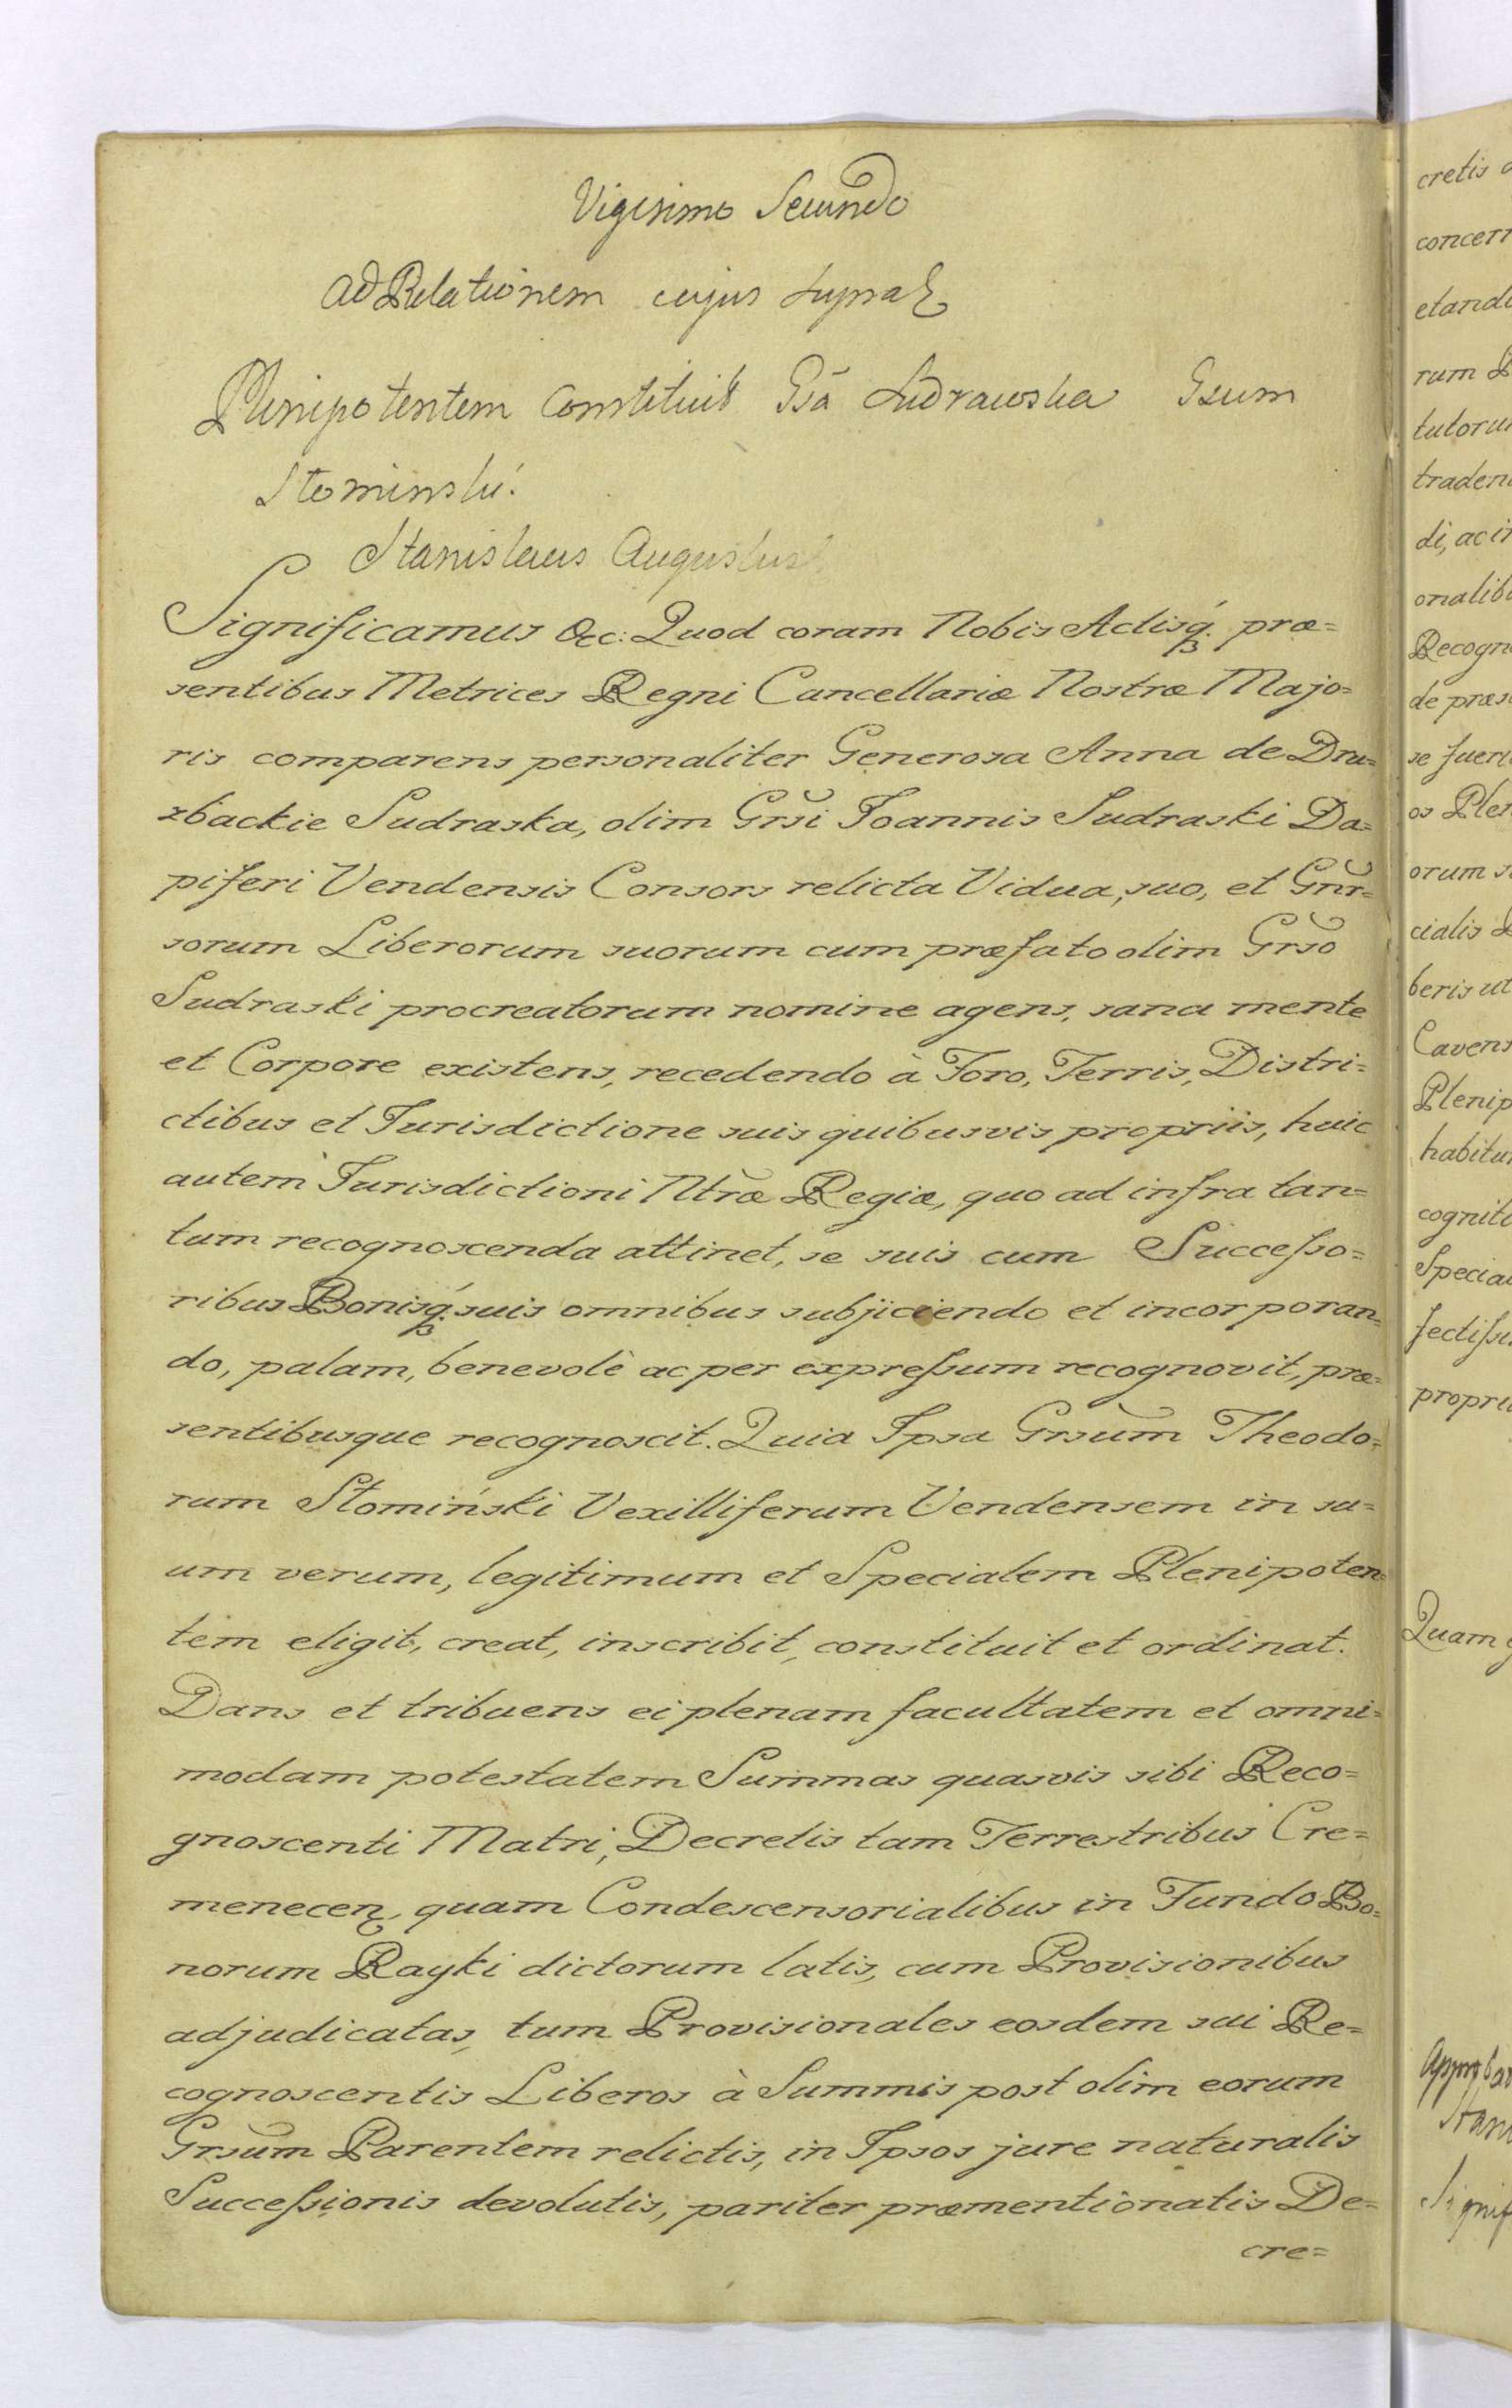 Vigesimo Secundo
Ad Relationem cujus supra
Plenipotentem Constituit Gsa Sudrawska Gsum
Słominski.
Stanislaus Augustus
Significamus &c: Quod coram Nobis Actisq́. præ=
sentibus Metrices Regni Cancellariæ Nostræ Majo=
ris comparens personaliter Generosa Anna de Dru=
zbackie Sudraska, olim Grsi Joannis Sudraski Da=
piferi Vendensis Consors relicta Vidua, suo, et Gnr=
sorum Liberorum suorum cum præfato olim Grso
Sudraski procreatorum nomine agens, sana mente
et Corpore existens, recedendo à Foro, Terris, Distri=
ctibus et Jurisdictione suis quibusvis propriis, huic
autem Jurisdictioni Ntræ Regiæ, quo ad infra tan=
tum recognoscenda attinet, se suis cum Successo=
ribus Bonisq́. suis omnibus subjiciendo et incorporan=
do, palam, benevolè ac per expressum recognovit, præ=
sentibusque recognoscit. Quia Ipsa Grsum Theodo=
rum Słomiński Vexilliferum Vendensem in su=
um verum, legitimum et Specialem Plenipoten=
tem eligit, creat, inscribit, constituit et ordinat.
Dans et tribuens ei plenam facultatem et omni=
modam potestatem Summas quasvis sibi Reco=
gnoscenti Matri, Decretis tam Terrestribus Cre=
menecen, quam Condescensorialibus in Fundo Bo=
norum Rayki dictorum latis, cum Provisionibus
adjudicatas, tum Provisionales eosdem sui Re=
cognoscentis Liberos à Summis post olim eorum
Grsum Parentem relictis, in Ipsos jure naturalis
Successionis devolutis, pariter præmentionatis De=
cre=
cretis
concern
etand
rum
tutoru
traden
di, ac i
onalib
Recogn
de præs
se fuer
os Ple
orum s
cialis
beris ut
Cavens
Plenip
habitu
cogniti
Specia
fectiss
propri
Quam
Signif